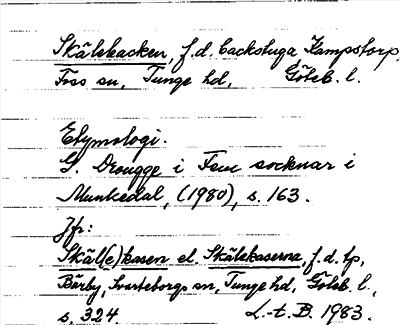 Skälebacken, f.d. backstuga Kampstorp,
Foss sn, Tunge hd, Göteb. l.
Etymologi.
G. Drougge i Fem socknar i
Munkedal, (1980), s. 163.
Jfr:
Skäl(e)kasen el. Skälekaserna, f.d. tp,
Bärby, Svarteborgs sn, Tunge hd, Göteb. l.,
s. 324. L.-t. B. 1983.